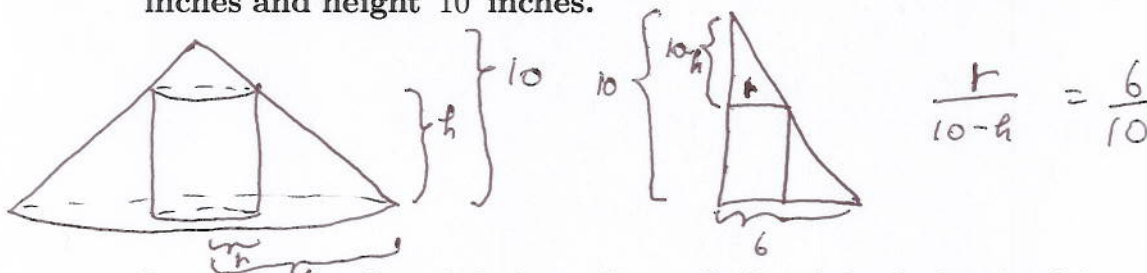 inches and height 10 inches.
h
10
r
10
10-h
r
6
r/(10-h) = 6/10